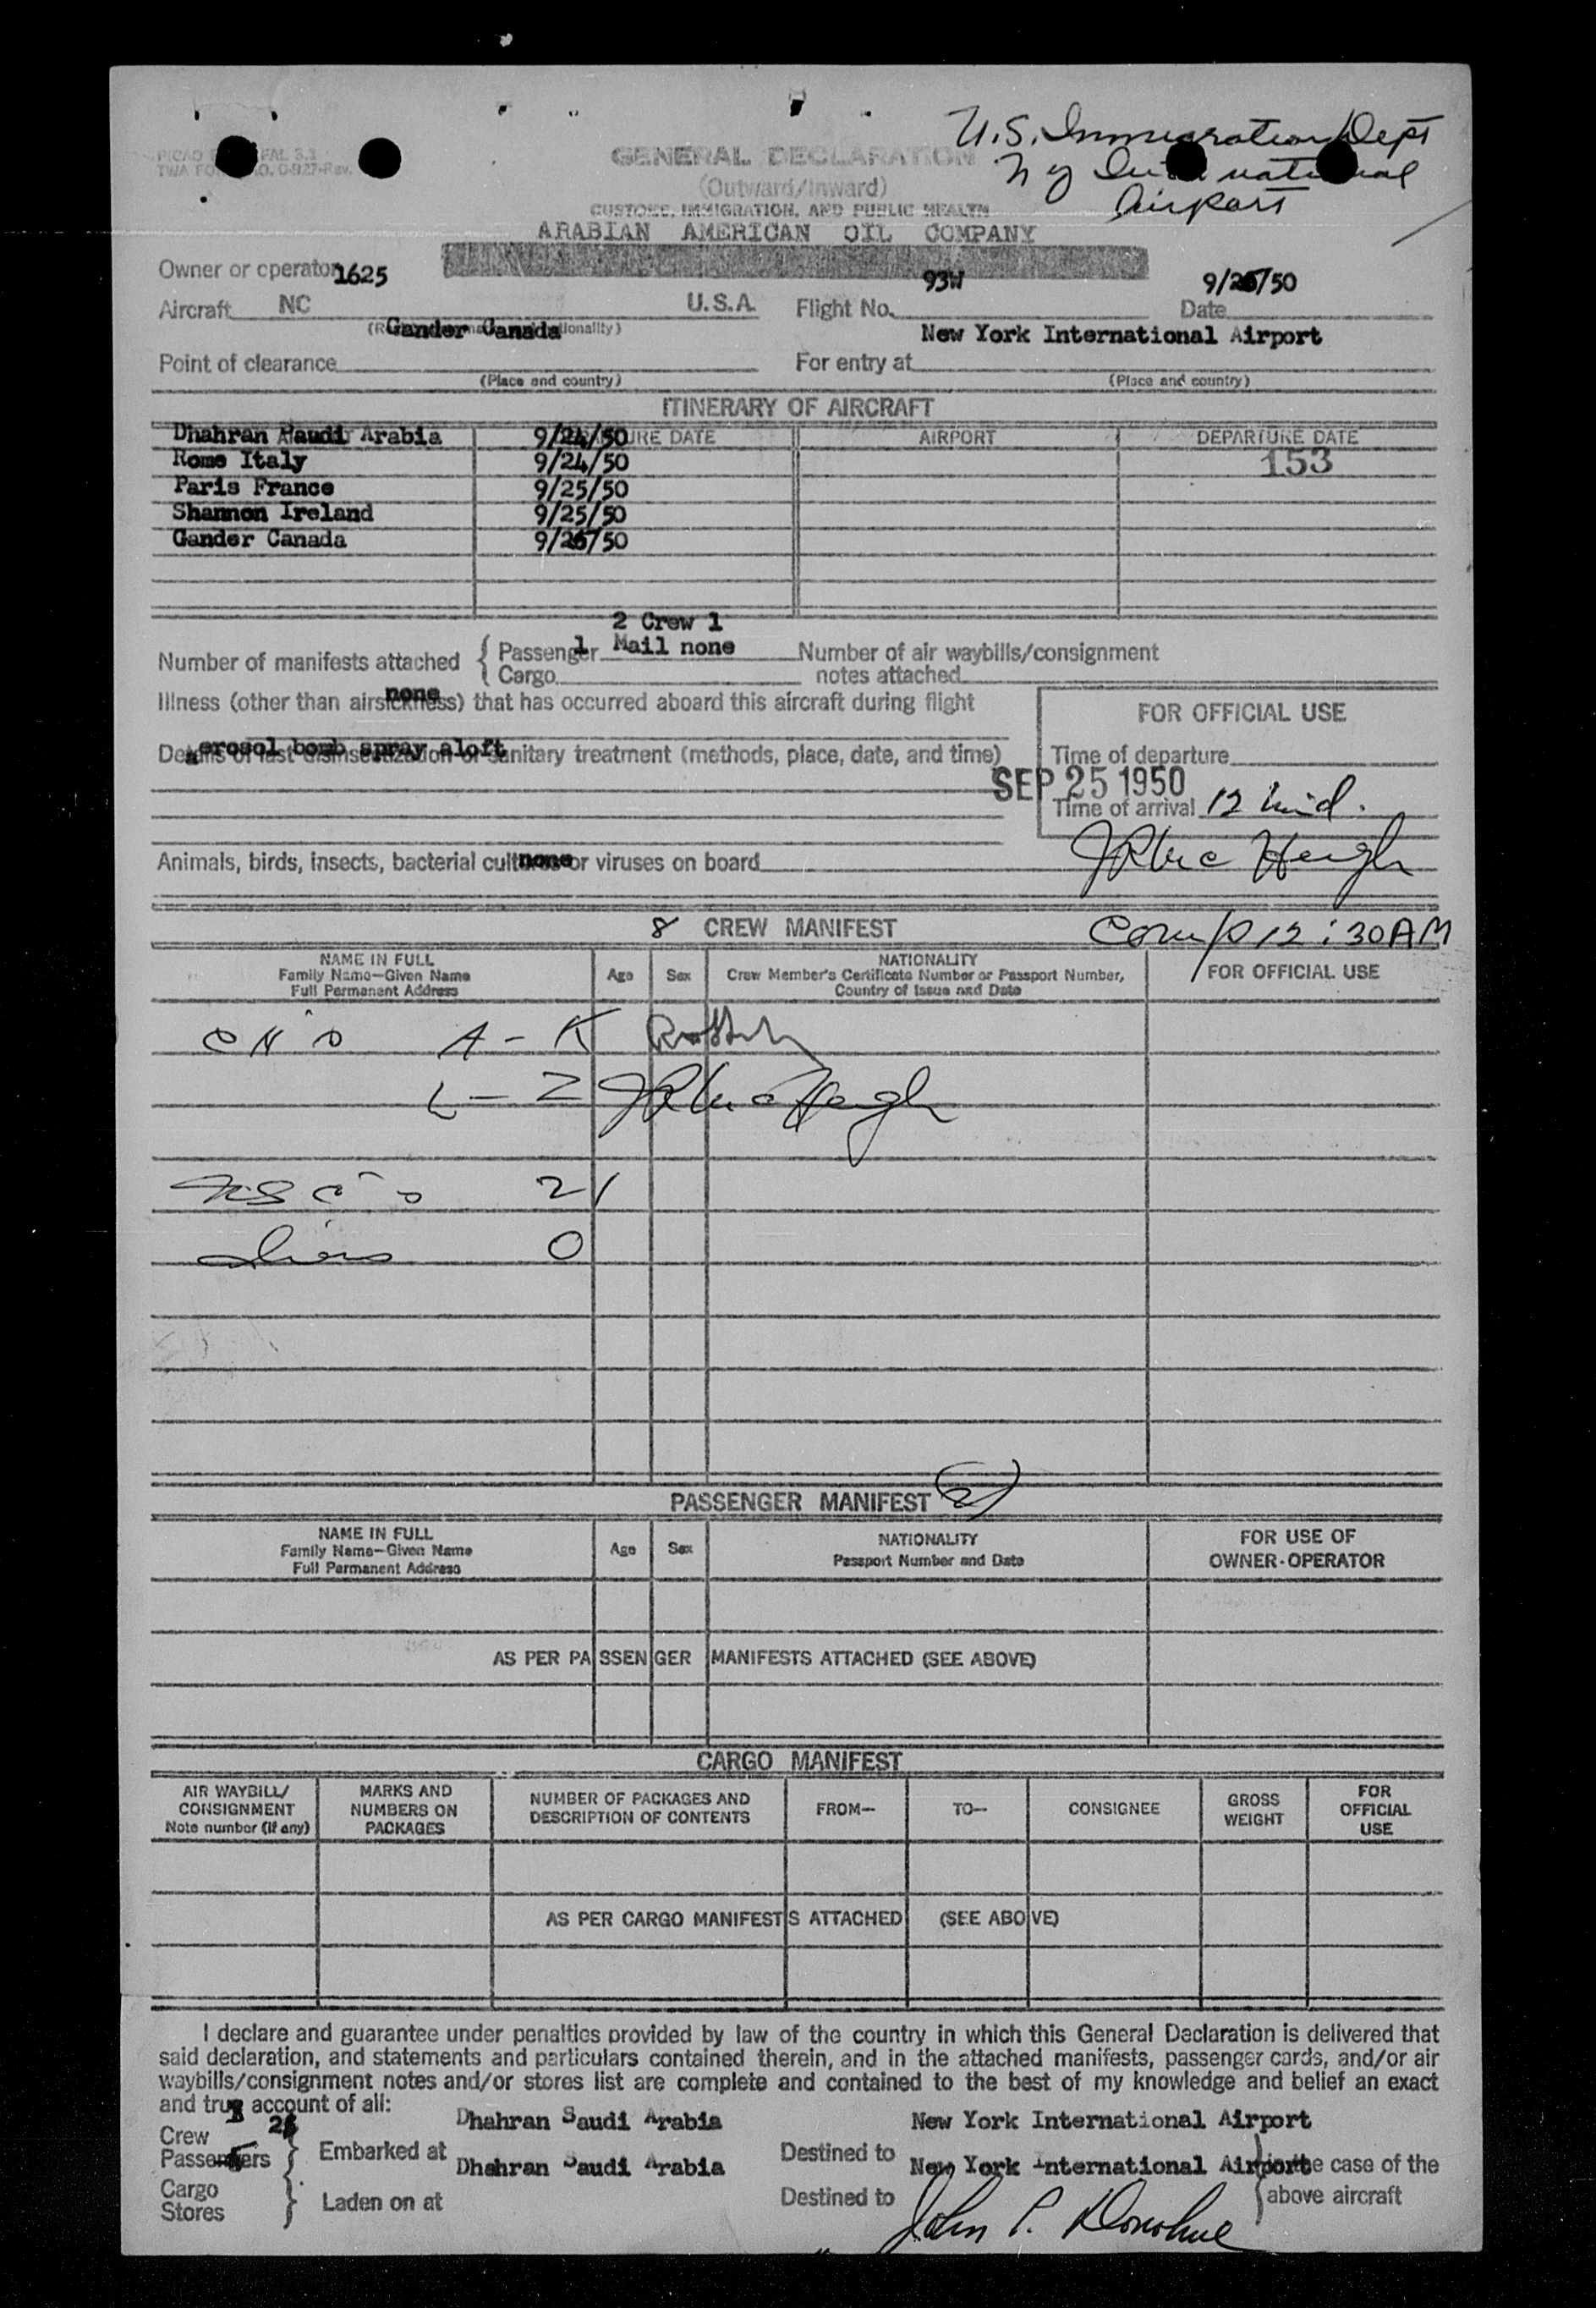 U.S. Immigration Dept
N Y International
Airport
PICAO FAL 3.3
TWA FORM NO. O-927-Rev.
GENERAL DECLARATION
(Outward/Inward)
CUSTOMS, IMMIGRATION, AND PUBLIC HEALTH
ARABIAN AMERICAN OIL COMPANY
Owner or operator 1625
Aircraft NC U.S.A. Flight No. 93W Date 9/26/50
Gander Canada New York International Airport
Point of clearance For entry at
(Place and country) (Place and country)
ITINERARY OF AIRCRAFT
Dhahran Saudi Arabia 9/24/50 DEPARTURE DATE AIRPORT DEPARTURE DATE
Rome Italy 9/24/50 153
Paris France 9/25/50
Shannon Ireland 9/25/50
Gander Canada 9/26/50
2 Crew 1
Number of manifests attached { Passenger 1 Mail none Number of air waybills/consignment
Cargo notes attached
Illness (other than airsickness) that has occurred aboard this aircraft during flight
none
FOR OFFICIAL USE
aerosol bomb spray aloft
Details of last disinsectization or sanitary treatment (methods, place, date, and time)
Time of departure
SEP 25 1950
Time of arrival 12 mid.
Animals, birds, insects, bacterial cultures or viruses on board
none
8 CREW MANIFEST Comp 12:30 AM
NAME IN FULL
Family Name—Given Name
Full Permanent Address
Age Sex
NATIONALITY
Crew Member's Certificate Number or Passport Number,
Country of Issue and Date
FOR OFFICIAL USE
A - K
L - Z
USC's 21
aliens 0
PASSENGER MANIFEST 21
NAME IN FULL
Family Name—Given Name
Full Permanent Address
Age Sex
NATIONALITY
Passport Number and Date
FOR USE OF
OWNER-OPERATOR
AS PER PASSENGER MANIFESTS ATTACHED (SEE ABOVE)
CARGO MANIFEST
AIR WAYBILL/
CONSIGNMENT
Note number (if any)
MARKS AND
NUMBERS ON
PACKAGES
NUMBER OF PACKAGES AND
DESCRIPTION OF CONTENTS
FROM— TO— CONSIGNEE
GROSS
WEIGHT
FOR
OFFICIAL
USE
AS PER CARGO MANIFESTS ATTACHED (SEE ABOVE)
I declare and guarantee under penalties provided by law of the country in which this General Declaration is delivered that
said declaration, and statements and particulars contained therein, and in the attached manifests, passenger cards, and/or air
waybills/consignment notes and/or stores list are complete and contained to the best of my knowledge and belief an exact
and true account of all:
Dhahran Saudi Arabia New York International Airport
Crew 21
Passengers } Embarked at Destined to
Dhahran Saudi Arabia New York International Airport in the case of the
Cargo
Stores } Laden on at Destined to above aircraft
John P. Donohue